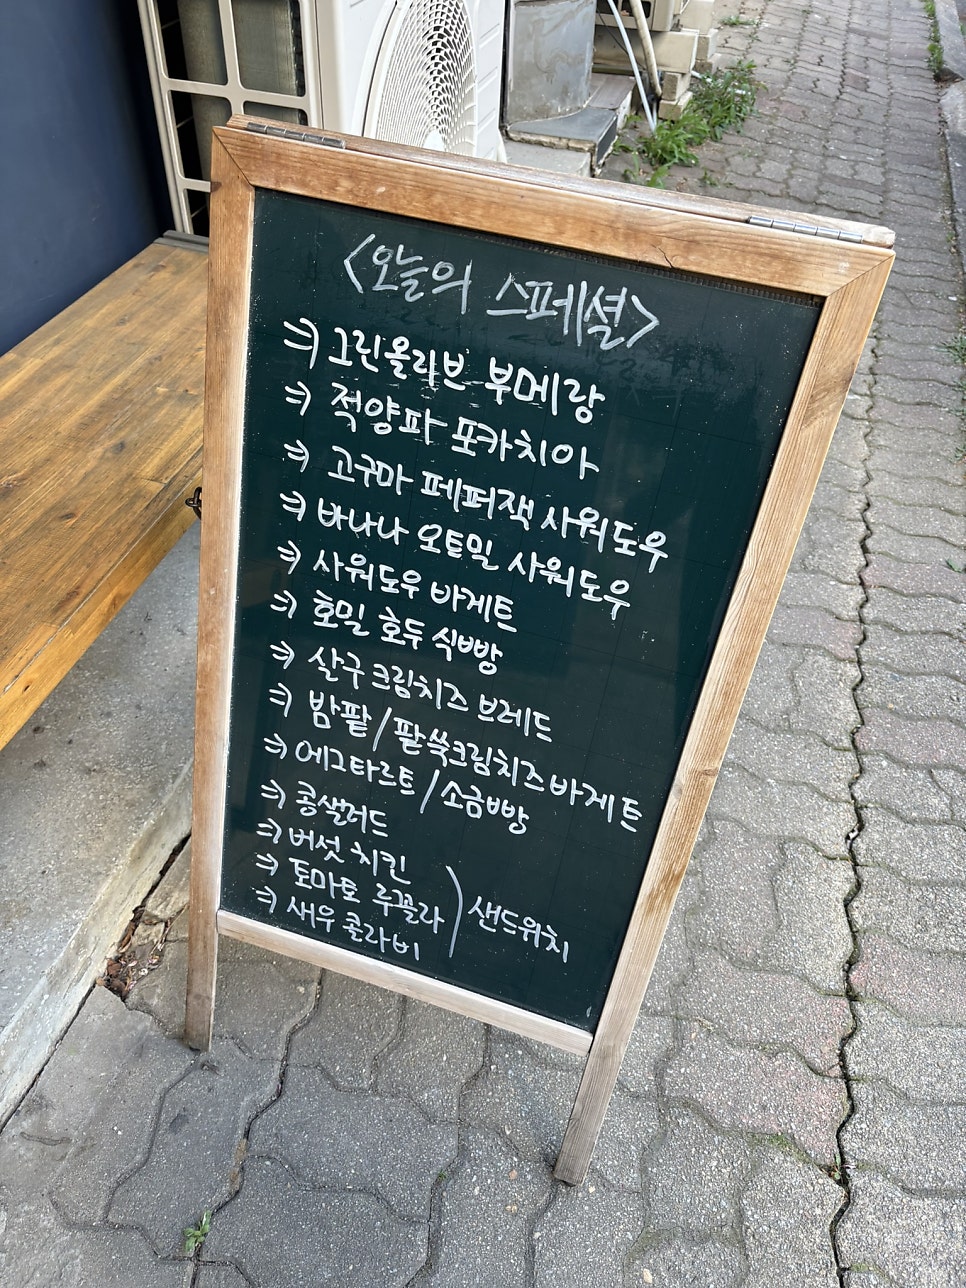 <오늘의 스페셜>
⇒ 그린올리브 부메랑
⇒ 적양파 포카치아
⇒ 고구마 페퍼잭 사워도우
⇒ 바나나 오트밀 사워도우
⇒ 사워도우 바게트
⇒ 호밀 호두 식빵
⇒ 살구 크림치즈 브레드
⇒ 밤팥/팥쑥크림치즈바게트
⇒ 에그타르트/소금빵
⇒ 콩샐러드
⇒ 버섯 치킨
⇒ 토마토 루꼴라 ) 샌드위치
⇒ 새우 콜라비